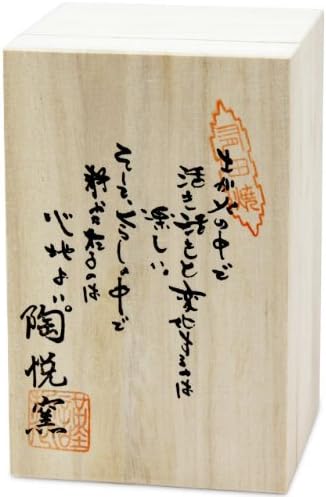 有田焼
土が火の中で
活き活きと変化するのは
楽しい。
そして、くらしの中で
静かに在るのは
心地よい。
陶悦窯